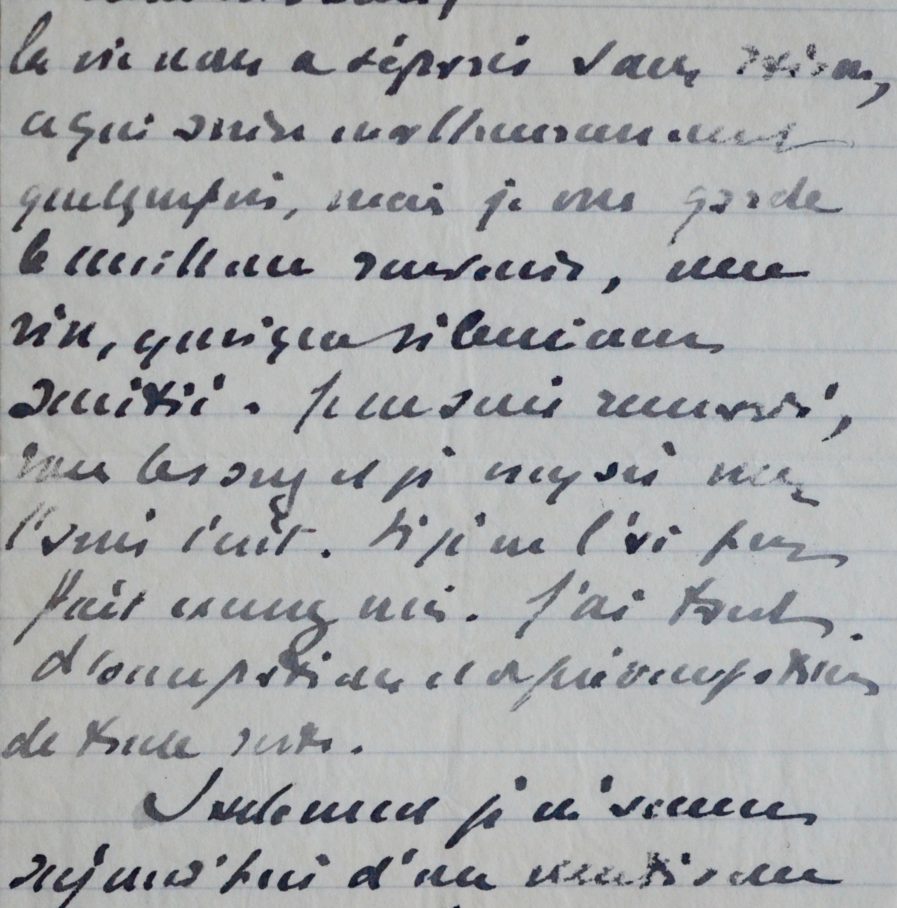 la vie nous a séparés sans raison,
ce qui arrive malheureusement
quelquefois, mais je vous garde
le meilleur souvenir, une
vive, quoique silencieuse
amitié. Je me suis remarié,
et je
l'avais écrit. Si je ne l'ai pas
fait excusez moi. J'ai tant
d'occupations et de préoccupations
de toute sorte.
Seulement je m'
aujourd'hui d'un